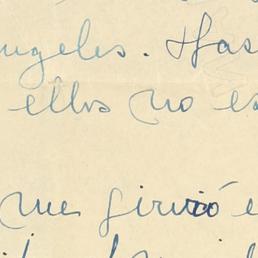 ngeles. Has
ellos no es
me girvió e